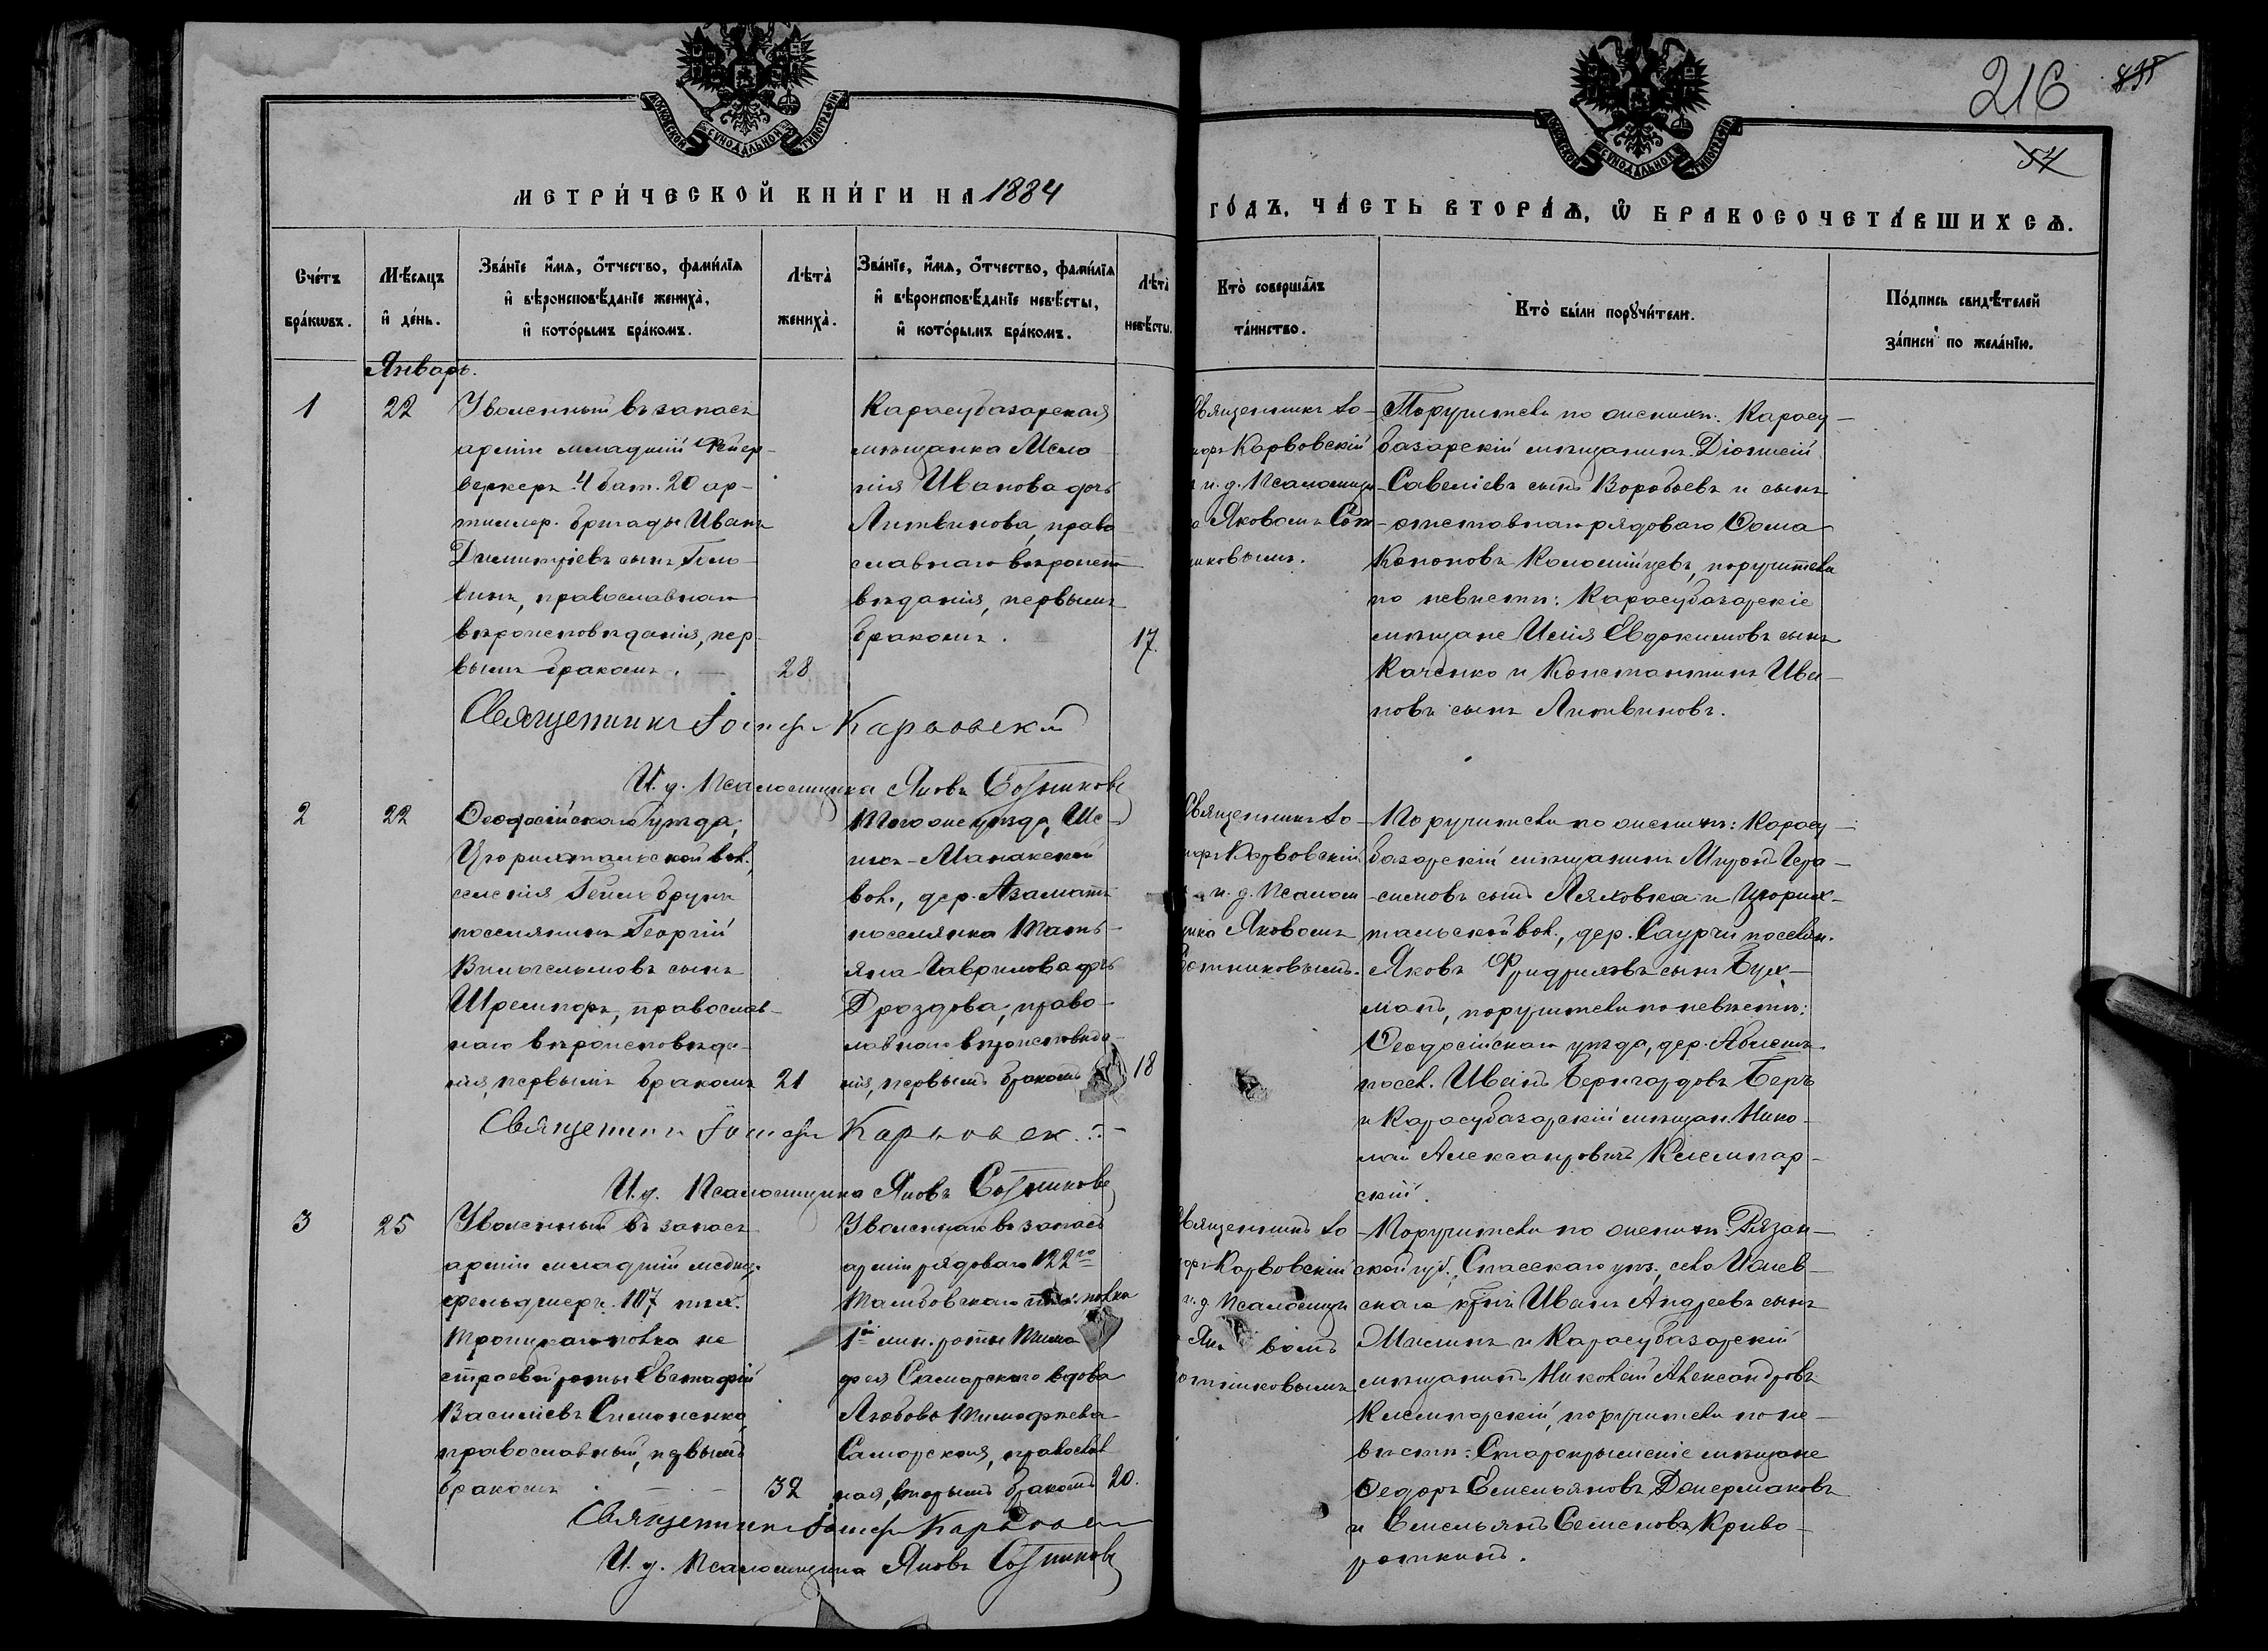 216
МОСКОВСКОЙ СУНОДАЛЬНОЙ ТИПОГРАФІИ
МОСКОВСКОЙ СУНОДАЛЬНОЙ ТИПОГРАФІИ
МЕТРИ́ЧЕСКОЙ КНИ́ГИ НА 1884
ГО́ДЪ, ЧА́СТЬ ВТОРА́Ѧ, Ѽ БРАКОСОЧЕТА́ВШИХСѦ.
Сче́тъ бра́кѡвъ.
Мѣ́сяцъ и҆ де́нь.
Зва́нїе и҆́мя, ѻ҆́тчество, фами́лїя
и҆ вѣроисповѣ́данїе жениха̀,
и҆ кото́рымъ бра́комъ.
Лѣта̀ жениха̀.
Зва́нїе, и҆́мя, ѻ҆́тчество, фами́лїя
и҆ вѣроисповѣ́данїе невѣ́сты,
и҆ кото́рымъ бра́комъ.
Лѣта̀ невѣ́сты.
Кто̀ соверша́лъ
та́инство.
Кто̀ бы́ли порꙋчи́тели.
По́дпись свидѣ́телей
за́писи по жела́нїю.
Январь.
1
22
Уволенный въ запасъ
арміи младшій Фейер-
веркеръ 4 бат. 20 ар-
тиллер. бригады Иванъ
Димитріевъ сынъ
православнаго
вѣроисповѣданія, пер-
вымъ бракомъ.
28
Карасубазарская
мѣщанка Мела
нія Иванова дочь
Литвинова, право
славнаго вѣроисп
вѣданія, первымъ
бракомъ.
17.
Священникъ Іо-
Карвовскій
и. д. Псаломщи
Яковомъ Сот
никовымъ.
Поручители по женихѣ: Карасу-
базарскій мѣщанинъ Діонисій
Савеліевъ сынъ Воробьевъ и сынъ
отставнаго рядоваго Ѳома
Кононовъ Коломійцевъ, поручители
по невѣстѣ: Карасубазарскіе
мѣщане Илія Евдокимовъ сынъ
Каченко и Константинъ Ива-
новъ сынъ Литвиновъ.
Священникъ Іосифъ Карвовскій
И. д. Псаломщика Яковъ Сотниковъ
2
22
Ѳеодосійскаго уѣзда,
Цюрихтальской вол.
селенія Гейльбрунъ
поселянинъ Георгій
Вильгельмовъ сынъ
православ-
наго вѣроисповѣда-
нія, первымъ бракомъ
21
Того же уѣзда,
вол., дер. Азаматъ
поселянка Тать-
яна Гаврилова дочь
Дроздова, право-
славнаго вѣроисповѣда-
нія, первымъ бракомъ
18
Священникъ Іо-
Карвовскій
и. д. Псалом
щика Яковомъ
Сотниковымъ.
Поручители по женихѣ: Карасу-
базарскій мѣщанинъ Миронъ Гера-
симовъ сынъ Ляховка и Цюрих-
тальской вол., дер. Саурчи поселян.
Яковъ Фридриховъ сынъ Бух-
манъ, поручители по невѣстѣ:
Ѳеодосійскаго уѣзда, дер. Аблешъ
посел. Иванъ Бернгардовъ Беръ
и Карасубазарскій мѣщан. Нико-
лай Александровичъ Клемпар-
скій.
Священникъ Іосифъ Карвовск
И. д. Псаломщика Яковъ Сотниковъ
3
25
Уволенный въ запасъ
арміи младшій медиц.
фельдшеръ 107 пѣх.
Троицкаго полка не
строевой роты Евстафій
Василіевъ Симоненко,
православный, первымъ
бракомъ
32
Уволеннаго въ запасъ
арміи рядоваго 122го
Тамбовскаго полка
1й лин. роты Тимо
фея Самарскаго вдова
Любовь Тимофѣева
Самарская, православ
ная, вторымъ бракомъ
20.
Священникъ Іо
Карвовскій
и. д. Псаломщи
вомъ
отниковымъ
Поручители по женихѣ: Рязан-
ской губ., Спасскаго уѣз., села Ижев-
скаго Иванъ Андреевъ сынъ
и Карасубазарскій
мѣщанинъ Николай Александровъ
Клемпарскій, поручители по не-
вѣстѣ: Старокрымскіе мѣщане
Ѳедоръ Емельяновъ Донермаковъ
и Емельянъ Семеновъ Криво-
роткинъ.
Священникъ Іосифъ Карвовск
И. д. Псаломщика Яковъ Сотниковъ